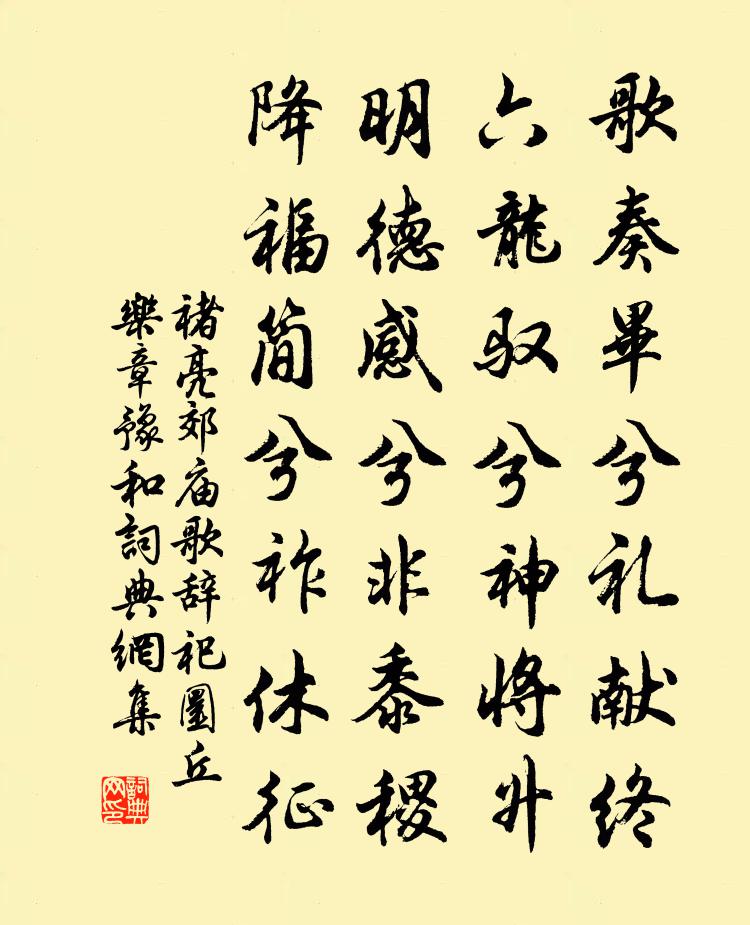 歌奏畢兮礼献终
六龍驭兮神将升
明德感兮非黍稷
降福简兮祚休征
褚亮郊庙歌辞祀圜丘
樂章豫和詞典網集
詞典网印